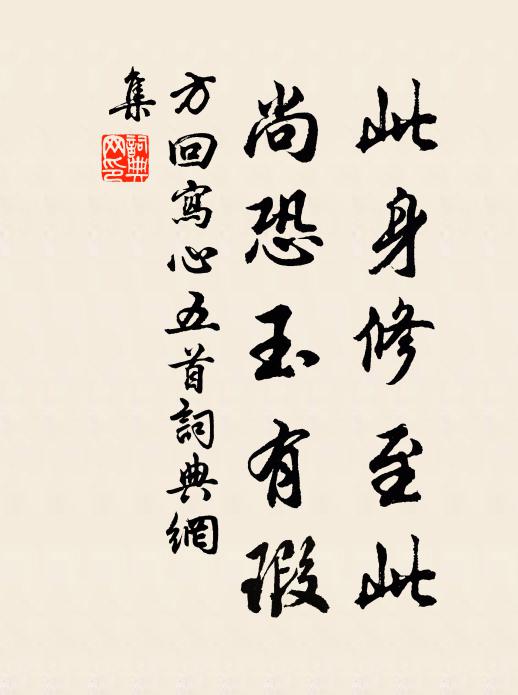 此身修至此
尚恐玉有瑕
方回寫心五首詞典網
集
詞典網印